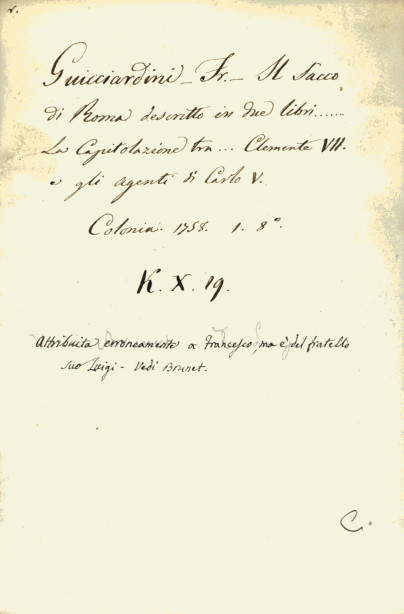 Guicciardini - Fr. - Il Sacco
di Roma descritto in due libri......
La Capitolazione tra... Clemente VII.
e gli agenti di Carlo V.
Colonia. 1758. 1. 8°.
K. X. 19.
Attribuita erroneamente a Francesco, ma è del fratello
suo Luigi - Vedi Brunet.
C.